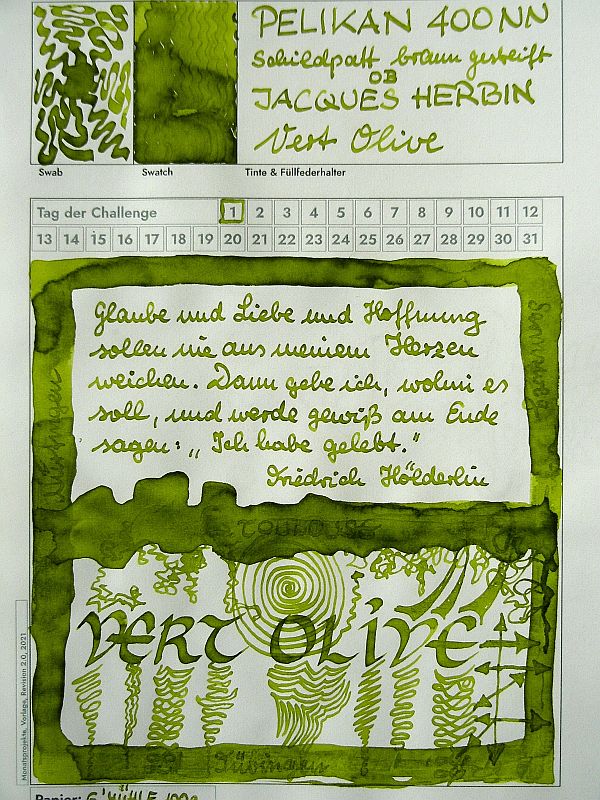 PELIKAN 400NN
Schildpatt braun gestreift
OB
JACQUES HERBIN
Vert Olive
Swab
Swatch
Tinte & Füllfederhalter
Tag der Challenge 1 2 3 4 5 6 7 8 9 10 11 12
13 14 15 16 17 18 19 20 21 22 23 24 25 26 27 28 29 30 31
Glaube und Liebe und Hoffnung
sollen nie aus meinem Herzen
weichen. Dann gehe ich, wohin es
soll, und werde gewiß am Ende
sagen: „Ich habe gelebt."
Friedrich Hölderlin
Nürtingen
TOULOUSE
VERT OLIVE
Tübingen
Monatsprojekte, Vorlage, Revision 2.0, 2021
Papier: G'MÜHLE 100g